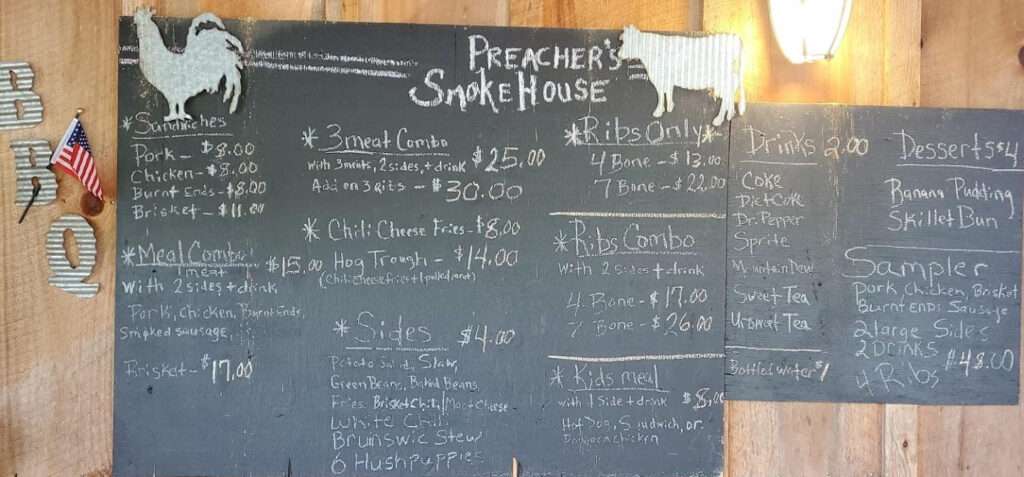 BBQ
PREACHER'S
SMOKEHOUSE
*Sandwiches
Pork - $8.00
Chicken - $8.00
Burnt Ends - $8.00
Brisket - $11.00
*Meal Combo $15.00
1 meat
with 2 sides + drink
Pork, Chicken, Burnt Ends,
Smoked sausage,
Brisket - $17.00
*3 meat Combo
with 3 meats, 2 sides, + drink $25.00
Add on 3 - $30.00
*Chili Cheese Fries - $8.00
Hog Trough - $14.00
(Chili cheese fries + 1 pulled meat)
*Sides $4.00
Potato Salad, Slaw,
Green Beans, Baked Beans,
Fries, Brisket Chili, Mac + Cheese
White Chili
Brunswic Stew
6 Hushpuppies
*Ribs Only*
4 Bone - $13.00
7 Bone - $22.00
*Ribs Combo
with 2 sides + drink
4 Bone - $17.00
7 Bone - $26.00
*Kids meal
with 1 side + drink $8.00
Hot Dog, Sandwich, or
chicken
Drinks 2.00
Coke
Diet Coke
Dr. Pepper
Sprite
Mountain Dew
Sweet Tea
Unsweet Tea
Bottled Water $1
Desserts $4
Banana Pudding
Skillet Bun
Sampler
Pork, Chicken, Brisket
Burnt Ends Sausage
2 large Sides
2 DRINKS $48.00
4 Ribs